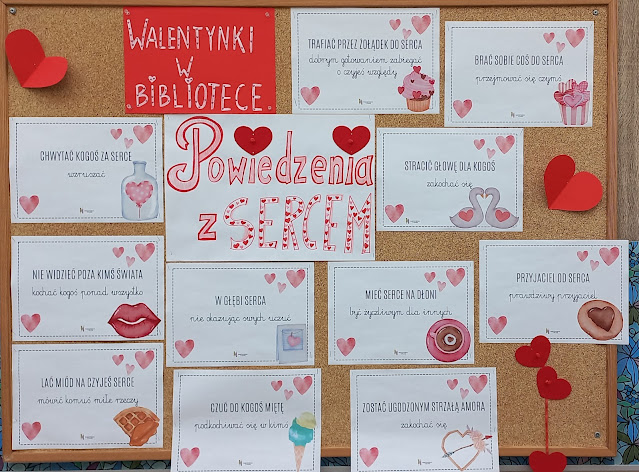 WALENTYNKI
W
BIBLIOTECE
TRAFIAĆ PRZEZ ŻOŁĄDEK DO SERCA
dobrym gotowaniem zabiegać
o czyjeś względy
BRAĆ SOBIE COŚ DO SERCA
przejmować się czymś
CHWYTAĆ KOGOŚ ZA SERCE
wzruszać
Powiedzenia
z SERCEM
STRACIĆ GŁOWĘ DLA KOGOŚ
zakochać się
NIE WIDZIEĆ POZA KIMŚ ŚWIATA
kochać kogoś ponad wszystko
W GŁĘBI SERCA
nie okazując swych uczuć
MIEĆ SERCE NA DŁONI
być życzliwym dla innych
PRZYJACIEL OD SERCA
prawdziwy przyjaciel
LAĆ MIÓD NA CZYJEŚ SERCE
mówić komuś miłe rzeczy
CZUĆ DO KOGOŚ MIĘTĘ
podkochiwać się w kimś
ZOSTAĆ UGODZONYM STRZAŁĄ AMORA
zakochać się